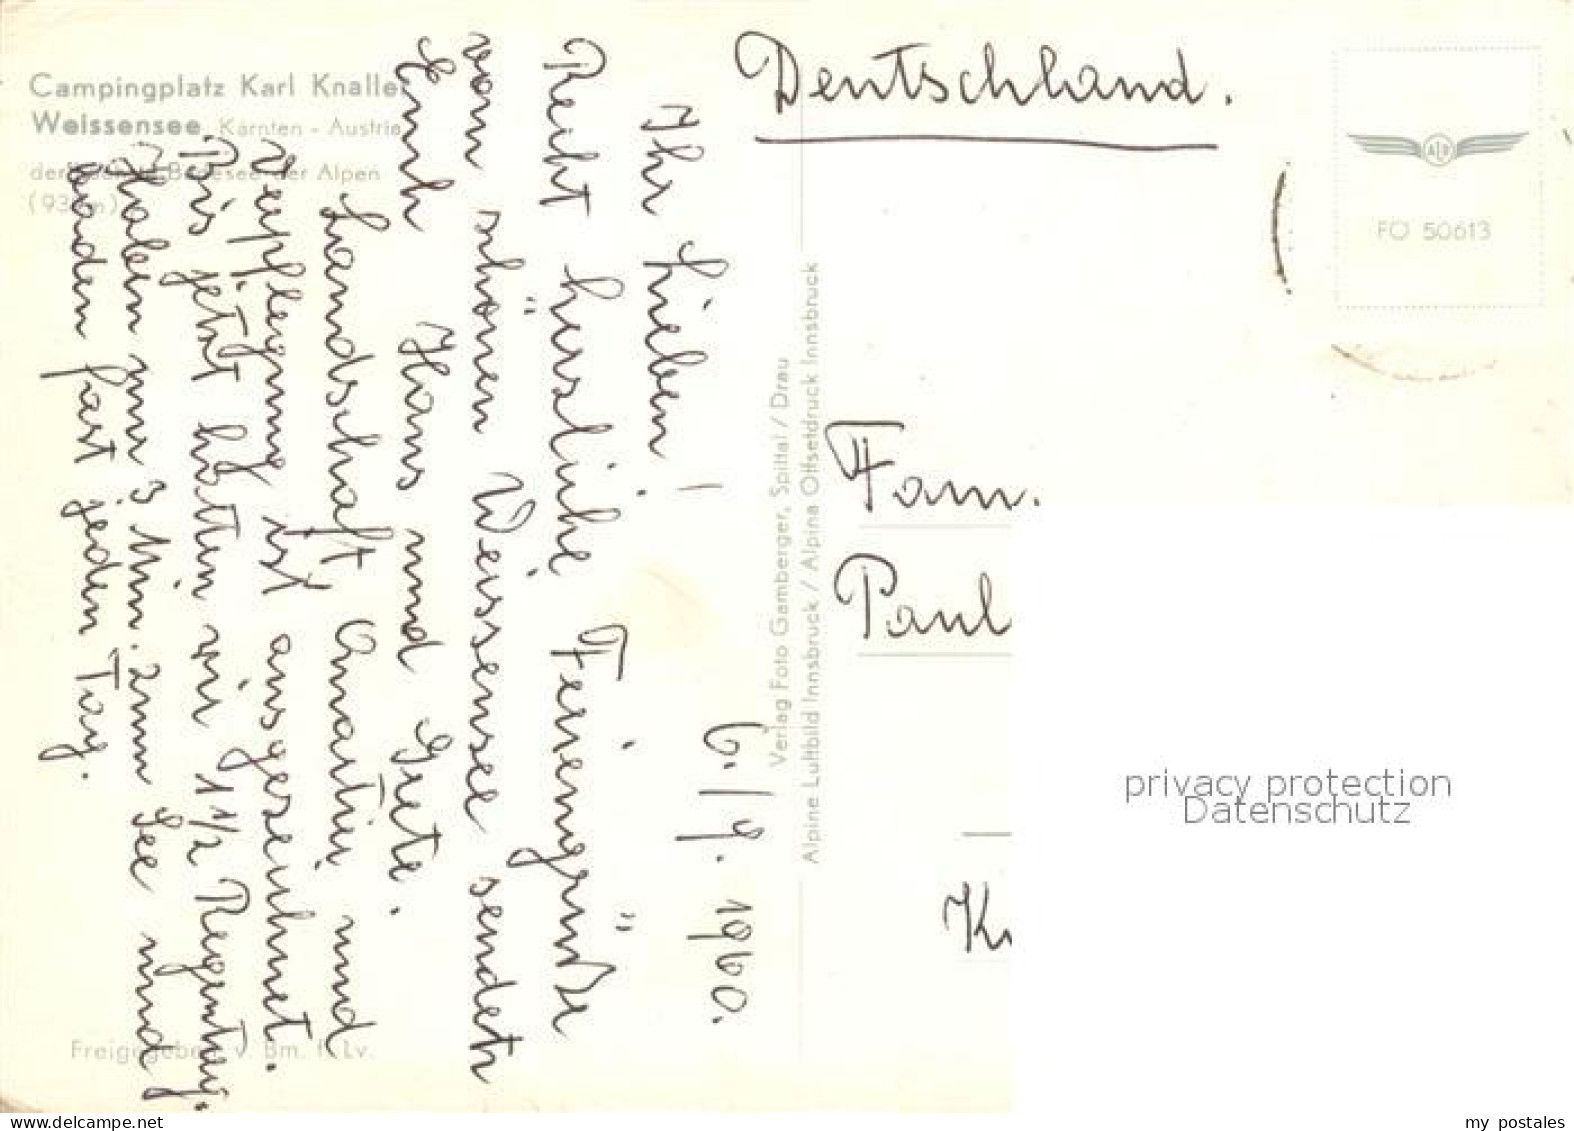 Campingplatz Karl Knaller
Weissensee, Kärnten - Austria
der höchste Badesee der Alpen
(93 m)
6./9. 1960.
Ihr Lieben!
Recht herzliche Feriengrüße
vom schönen Weissensee sendet
Euch Hans und Grete.
Landschaft Quartier und
Verpflegung ist ausgezeichnet.
Bis jetzt hatten wir 1 1/2 Regentag.
Haben nur 3 Min. zum See und
baden fast jeden Tag.
Freigegeben v. Bm. f. Lv.
Verlag Foto Gamberger, Spittal / Drau
Alpine Luftbild Innsbruck / Alpina Offsetdruck Innsbruck
Deutschland.
FO 50613
Fam.
Paul
privacy protection
Datenschutz
www.delcampe.net
my postales